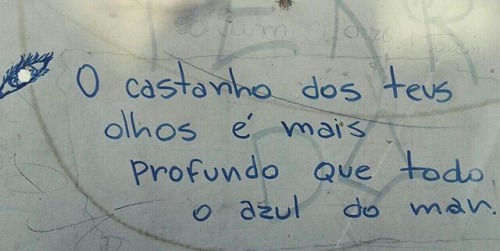 O castanho dos teus
olhos é mais
profundo que todo
o azul do mar.